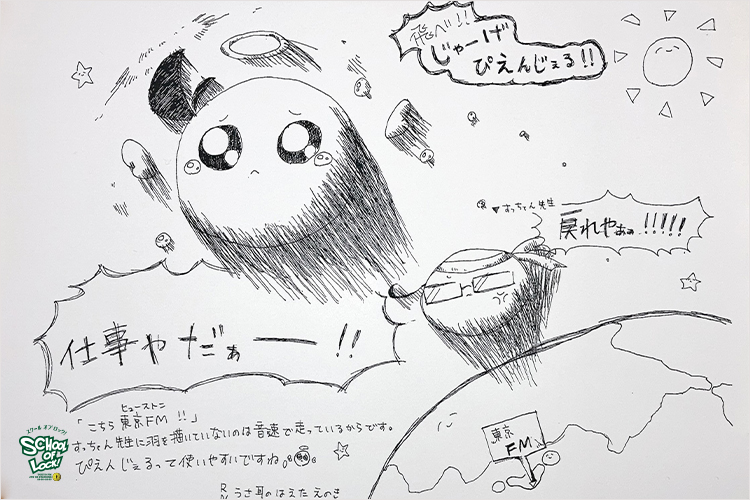 飛べ!!
じゃーげ
ぴえんじぇる!!
▼すっちゃん先生
戻れやぁぁ!!!!!
仕事やだぁー!!
ヒューストン
「こちら東京FM!!」
すっちゃん先生に羽を描いていないのは音速で走っているからです。
ぴえんじぇるって使いやすいですね。
東京
FM
RN うさ耳のはえたえのき
スクール オブ ロック!
SCHOOL
OF
LOCK!